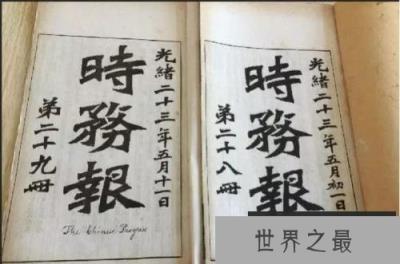 光緒二十三年五月十一日
時務報
第二十九冊
The Chinese Progress
光緒二十三年五月初一日
時務報
第二十八冊
世界之最